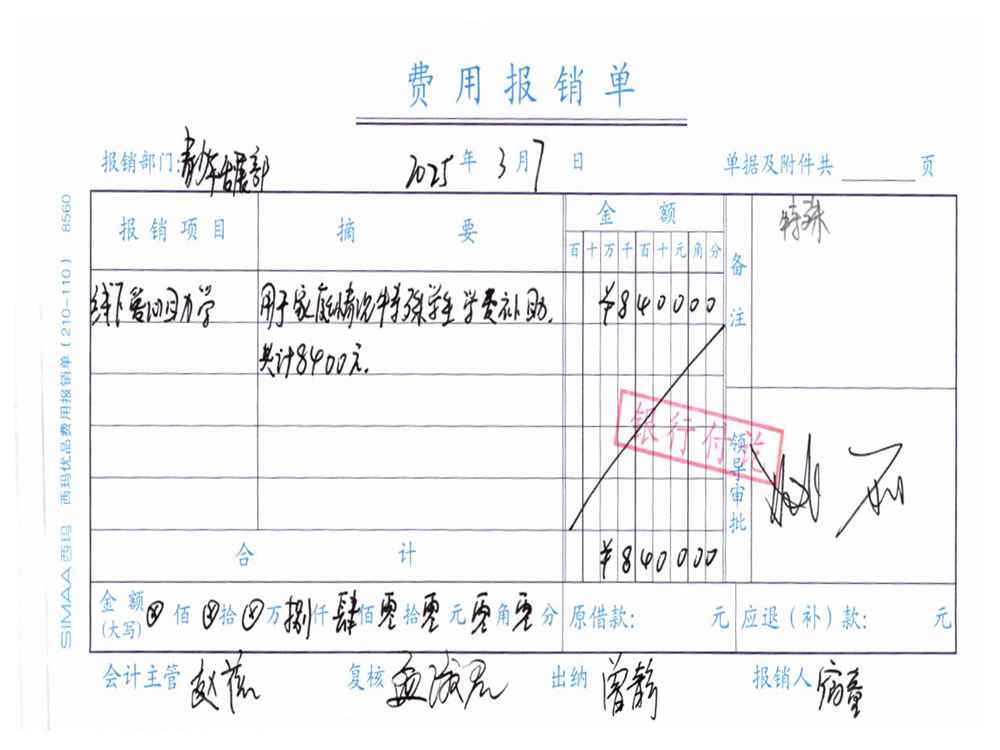 费用报销单
报销部门: 青少年发展部 2025年3月7日 单据及附件共 页
报销项目 摘要 金额 备注 特殊
百十万千百十元角分
线下爱心助学 用于家庭情况特殊学生学费补助, ¥840000
共计8400元.
银行付讫
领导审批
合计 ¥840000
金额(大写) ⊗佰⊗拾⊗万捌仟肆佰零拾零元零角零分 原借款: 元 应退(补)款: 元
会计主管 赵 复核 孟 出纳 曾静 报销人
SIMAA西玛 西玛优品费用报销单(210-110) 8560